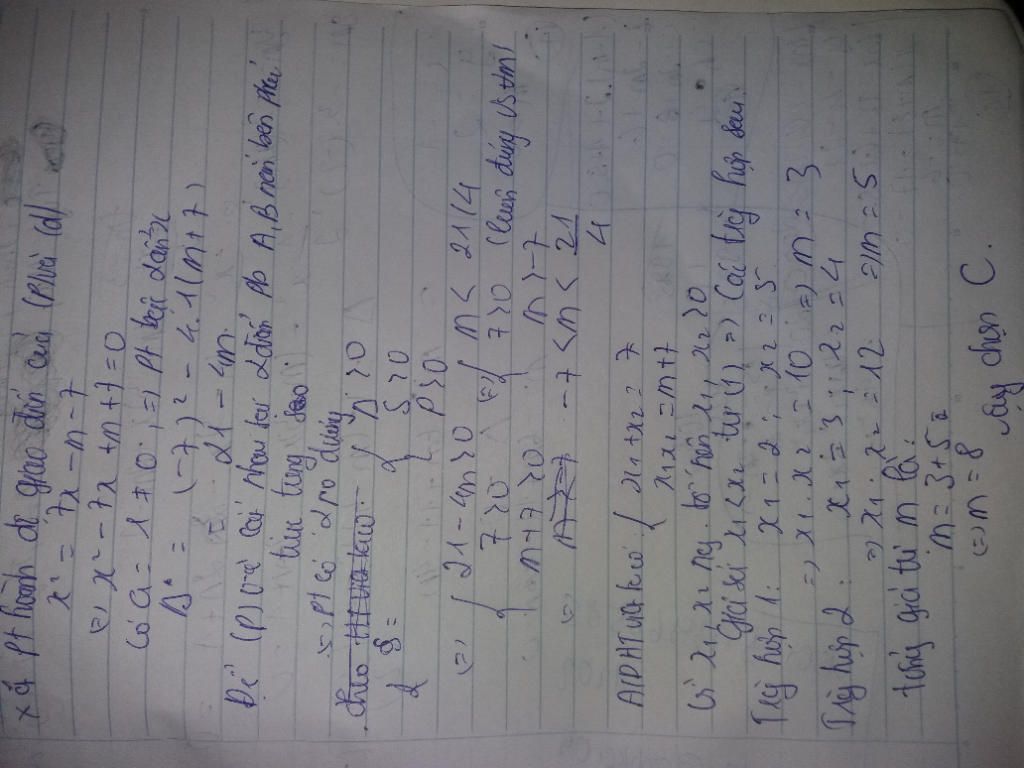 Xét Pt hoành độ giao điểm của (P) với (d)
x² = 7x - m - 7
(=) x² - 7x + m + 7 = 0
Có a = 1 ≠ 0 ; =) Pt bậc 2 ẩn x
Δ = (-7)² - 4.1(m + 7)
21 - 4m
Để (P) và cắt nhau tại 2 điểm Pb A, B nằm bên phải
trục tung
=) Pt có 2 no dương
{ Δ > 0
S > 0
P > 0
(=) { 21 - 4m > 0 (=) { m < 21/4
7 > 0 7 > 0 (luôn đúng
m + 7 > 0 m > -7
(=) -7 < m < 21/4
ADĐHTVI ta có { x1 + x2 = 7
x1x2 = m + 7
Vì x1, x2 ng. x1, x2 > 0
Giả sử x1 < x2 từ (1) =) Các trg hợp sau:
Trg hợp 1: x1 = 2 ; x2 = 5
=) x1 . x2 = 10 =) m = 3
Trg hợp 2: x1 = 3 ; x2 = 4
=) x1 . x2 = 12 =) m = 5
tổng giá trị m là:
m = 3 + 5
(=) m = 8
Vậy chọn C.